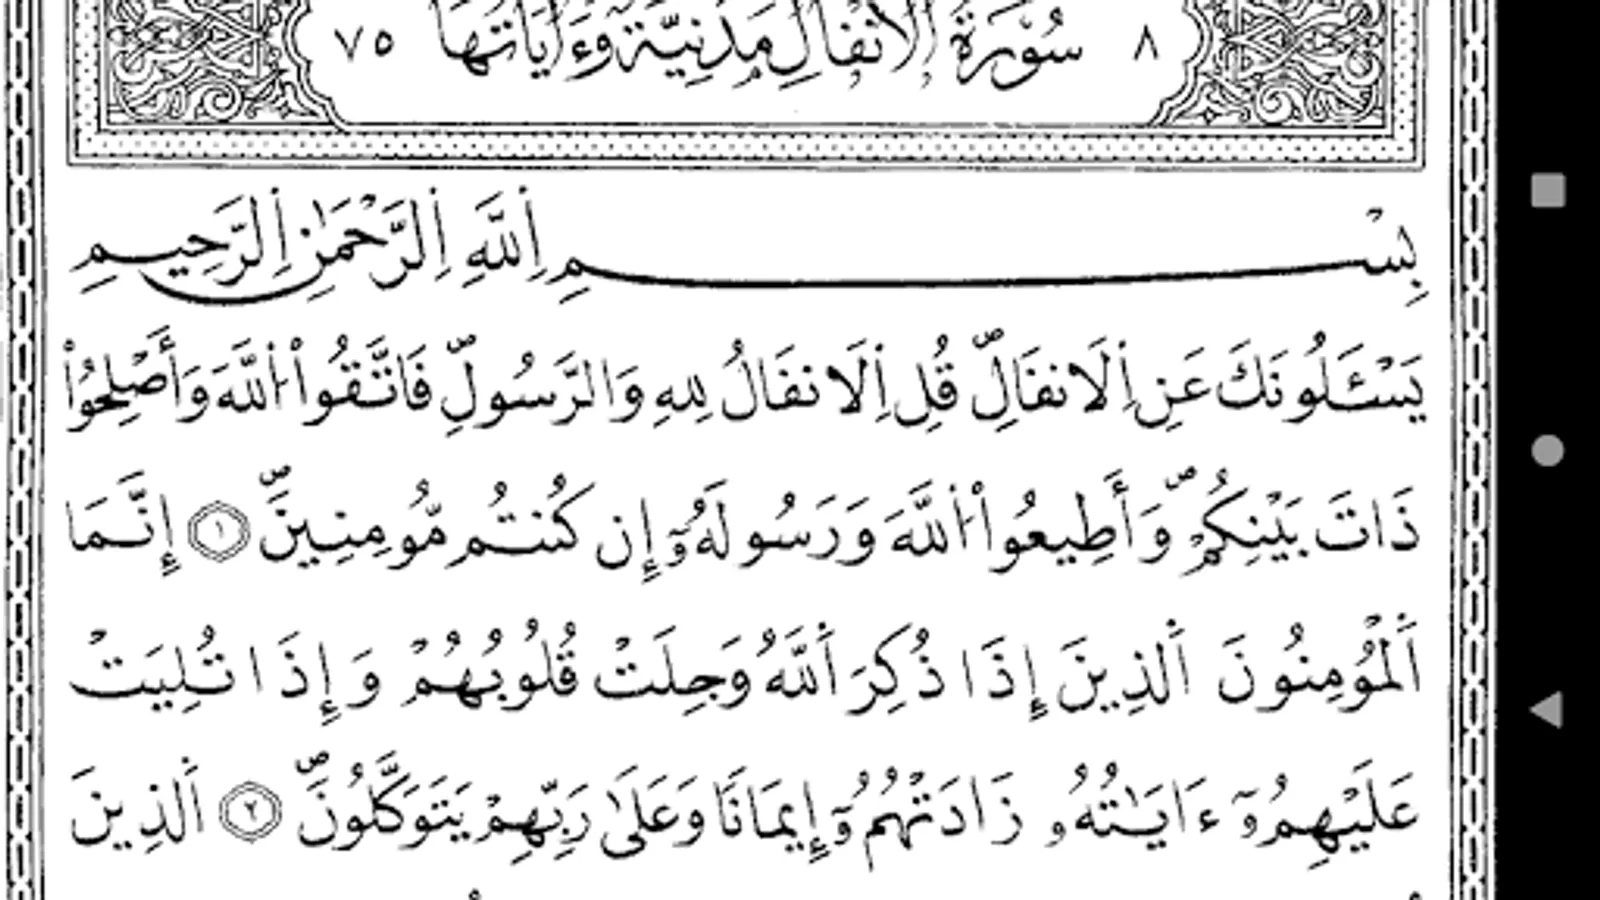 ٨ سُورَةُ الْأَنفَالِ مَدَنِيَّةٌ وَءَايَاتُهَا ٧٥
بِسْمِ اِ۬للَّهِ اِ۬لرَّحْمَٰنِ اِ۬لرَّحِيمِ
يَسْـَٔلُونَكَ عَنِ اِ۬لَانفَالِۖ قُلِ اِ۬لَانفَالُ لِلهِ وَالرَّسُولِۖ فَاتَّقُوا۟ اُ۬للَّهَ وَأَصْلِحُوا۟
ذَاتَ بَيْنِكُمْۖ وَأَطِيعُوا۟ اُ۬للَّهَ وَرَسُولَهُۥٓ إِن كُنتُم مُّومِنِينَۖ ۝١ إِنَّمَا
اَ۬لْمُؤْمِنُونَ اَ۬لذِينَ إِذَا ذُكِرَ اَ۬للَّهُ وَجِلَتْ قُلُوبُهُمْ وَإِذَا تُلِيَتْ
عَلَيْهِمُۥٓ ءَايَٰتُهُۥ زَادَتْهُمُۥٓ إِيمَانًا وَعَلَىٰ رَبِّهِمْ يَتَوَكَّلُونَۖ ۝٢ اَ۬لذِينَ